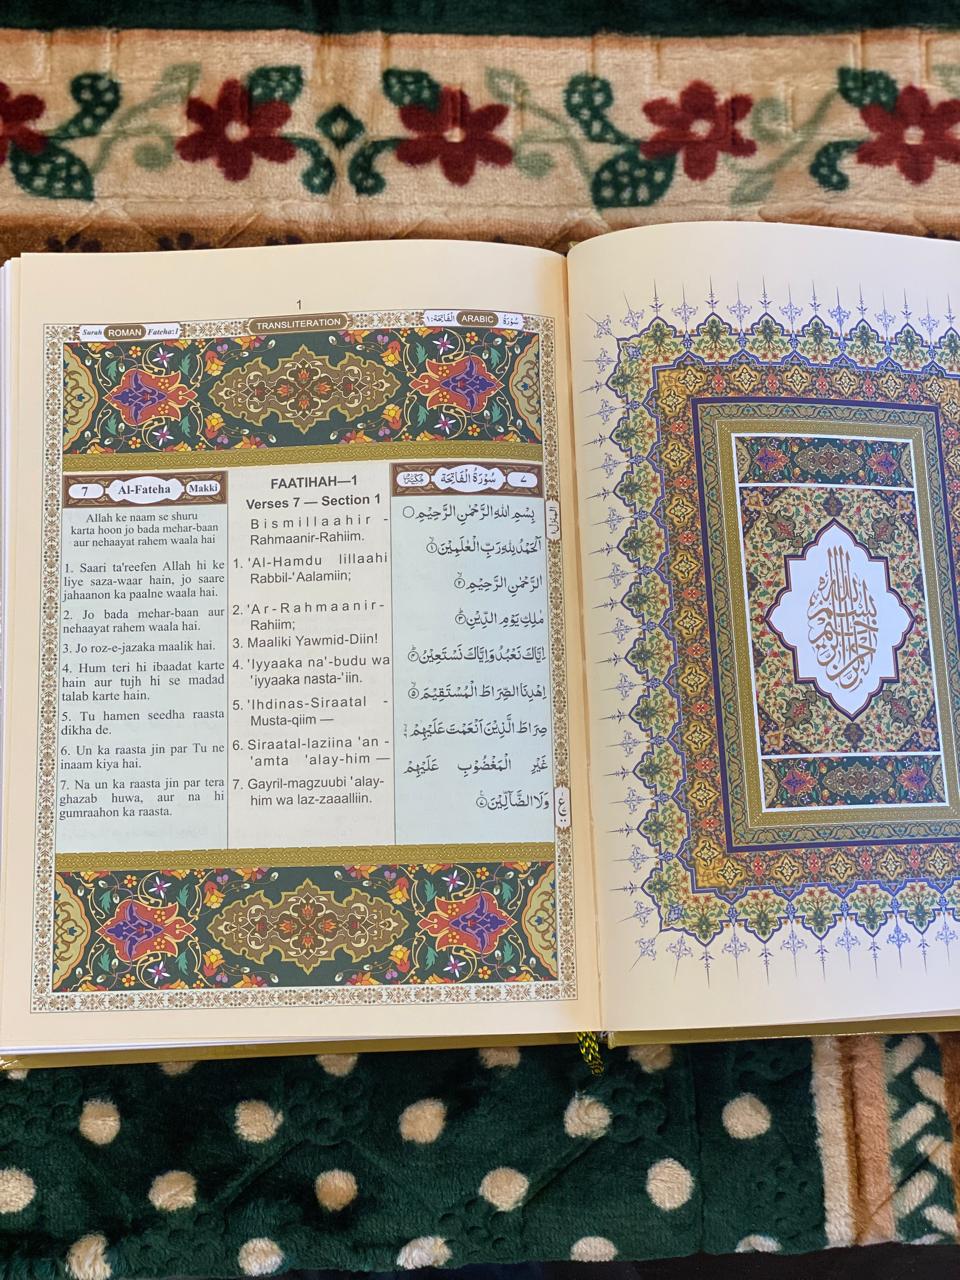 1
Surah ROMAN Fateha:1
TRANSLITERATION
الْفَاتِحَة:١ ARABIC سُوْرَةُ
7 Al-Fateha Makki
Allah ke naam se shuru
karta hoon jo bada mehar-baan
aur nehaayat rahem waala hai
1. Saari ta'reefen Allah hi ke
liye saza-waar hain, jo saare
jahaanon ka paalne waala hai.
2. Jo bada mehar-baan aur
nehaayat rahem waala hai.
3. Jo roz-e-jazaka maalik hai.
4. Hum teri hi ibaadat karte
hain aur tujh hi se madad
talab karte hain.
5. Tu hamen seedha raasta
dikha de.
6. Un ka raasta jin par Tu ne
inaam kiya hai.
7. Na un ka raasta jin par tera
ghazab huwa, aur na hi
gumraahon ka raasta.
FAATIHAH—1
Verses 7 — Section 1
Bismillaahir -
Rahmaanir-Rahiim.
1. 'Al-Hamdu lillaahi
Rabbil-'Aalamiin;
2. 'Ar-Rahmaanir-
Rahiim;
3. Maaliki Yawmid-Diin!
4. 'Iyyaaka na'-budu wa
'iyyaaka nasta-'iin.
5. 'Ihdinas-Siraatal -
Musta-qiim —
6. Siraatal-laziina 'an -
'amta 'alay-him —
7. Gayril-magzuubi 'alay-
him wa laz-zaaalliin.
٧ سُوْرَةُ الْفَاتِحَةِ مَكِّيَّةٌ
بِسْمِ اللهِ الرَّحْمٰنِ الرَّحِيْمِ
اَلْحَمْدُ لِلّٰهِ رَبِّ الْعٰلَمِيْنَ ۝١
الرَّحْمٰنِ الرَّحِيْمِ ۝٢
مٰلِكِ يَوْمِ الدِّيْنِ ۝٣
اِيَّاكَ نَعْبُدُ وَاِيَّاكَ نَسْتَعِيْنُ ۝٤
اِهْدِنَا الصِّرَاطَ الْمُسْتَقِيْمَ ۝٥
صِرَاطَ الَّذِيْنَ اَنْعَمْتَ عَلَيْهِمْ ۝٦
غَيْرِ الْمَغْضُوْبِ عَلَيْهِمْ
وَلَا الضَّآلِّيْنَ ۝٧
ع
بسم الله الرحمن الرحيم